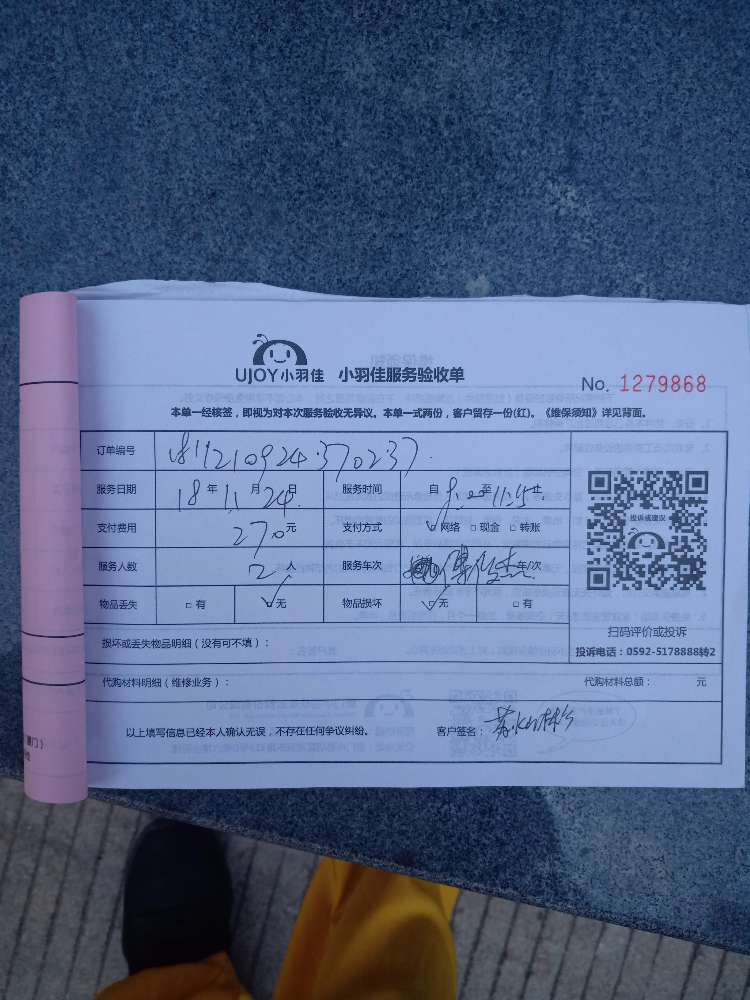 UJOY小羽佳 小羽佳服务验收单
No. 1279868
本单一经核签，即视为对本次服务验收无异议。本单一式两份，客户留存一份(红)。《维保须知》详见背面。
订单编号 1811210924370237
服务日期 18年11月24日 服务时间 自 至 11:5 止
支付费用 270元 支付方式 ☑网络 □现金 □转账
服务人数 2人 服务车次 车/次
物品丢失 □有 ☑无 物品损坏 ☑无 □有
投诉或建议
扫码评价或投诉
投诉电话：0592-5178888转2
损坏或丢失物品明细（没有可不填）：
代购材料明细（维修业务）： 代购材料总额： 元
以上填写信息已经本人确认无误，不存在任何争议纠纷。 客户签名：